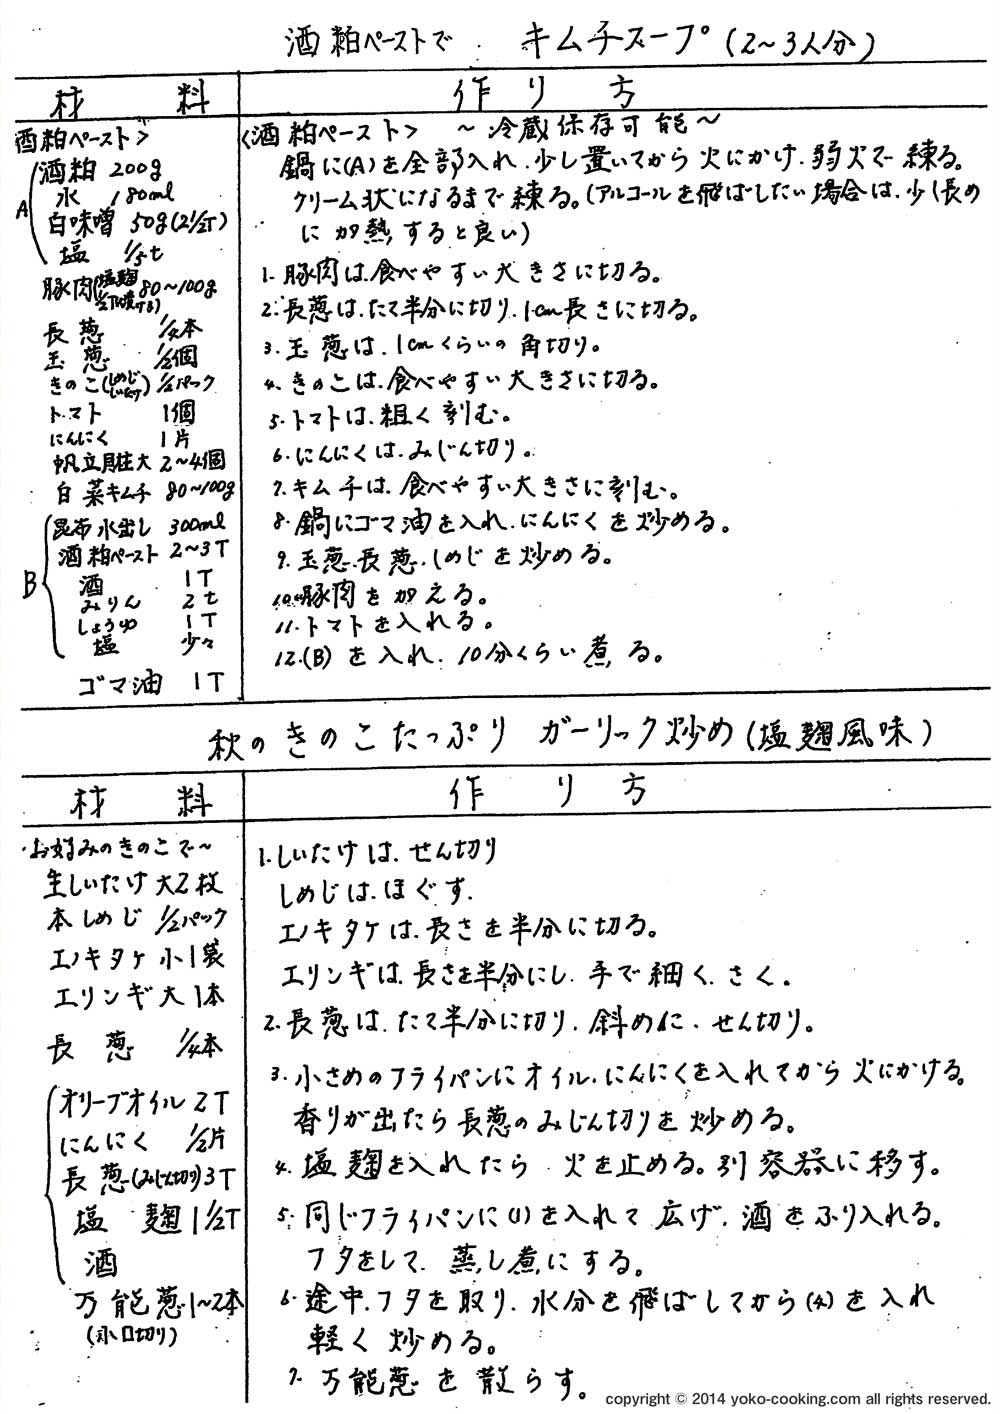 酒粕ペーストで キムチスープ(2~3人分)
材 料
作 り 方
酒粕ペースト>
A
酒粕 200g
水 180ml
白味噌 50g(2½T)
塩 ⅓t
豚肉(塩麹½T漬ける) 80~100g
長葱 ¼本
玉葱 ½個
きのこ(しめじ しいたけ) ½パック
トマト 1個
にんにく 1片
帆立貝柱大 2~4個
白菜キムチ 80~100g
B
昆布水出し 300ml
酒粕ペースト 2~3T
酒 1T
みりん 2t
しょうゆ 1T
塩 少々
ゴマ油 1T
<酒粕ペースト> ~冷蔵保存可能~
鍋に(A)を全部入れ、少し置いてから火にかけ、弱火で練る。
クリーム状になるまで練る。(アルコールを飛ばしたい場合は、少し長め
に加熱すると良い)
1. 豚肉は、食べやすい大きさに切る。
2. 長葱は、たて半分に切り、1cm長さに切る。
3. 玉葱は、1cmくらいの角切り。
4. きのこは、食べやすい大きさに切る。
5. トマトは、粗く刻む。
6. にんにくは、みじん切り。
7. キムチは、食べやすい大きさに刻む。
8. 鍋にゴマ油を入れ、にんにくを炒める。
9. 玉葱、長葱、しめじを炒める。
10. 豚肉を加える。
11. トマトを入れる。
12. (B)を入れ、10分くらい煮る。
秋のきのこたっぷり ガーリック炒め(塩麹風味)
材 料
作 り 方
・お好みのきのこで~
生しいたけ 大2枚
本しめじ ½パック
エノキタケ 小1袋
エリンギ 大1本
長葱 ¼本
オリーブオイル 2T
にんにく ½片
長葱(みじん切り) 3T
塩麹 1½T
酒
万能葱 1~2本
(小口切り)
1. しいたけは、せん切り
しめじは、ほぐす。
エノキタケは、長さを半分に切る。
エリンギは、長さを半分にし、手で細く、さく。
2. 長葱は、たて半分に切り、斜めに、せん切り。
3. 小さめのフライパンにオイル、にんにくを入れてから火にかける。
香りが出たら長葱のみじん切りを炒める。
4. 塩麹を入れたら 火を止める。別容器に移す。
5. 同じフライパンに(1)を入れて広げ、酒をふり入れる。
フタをして、蒸し煮にする。
6. 途中、フタを取り、水分を飛ばしてから(4)を入れ
軽く炒める。
7. 万能葱を散らす。
copyright © 2014 yoko-cooking.com all rights reserved.